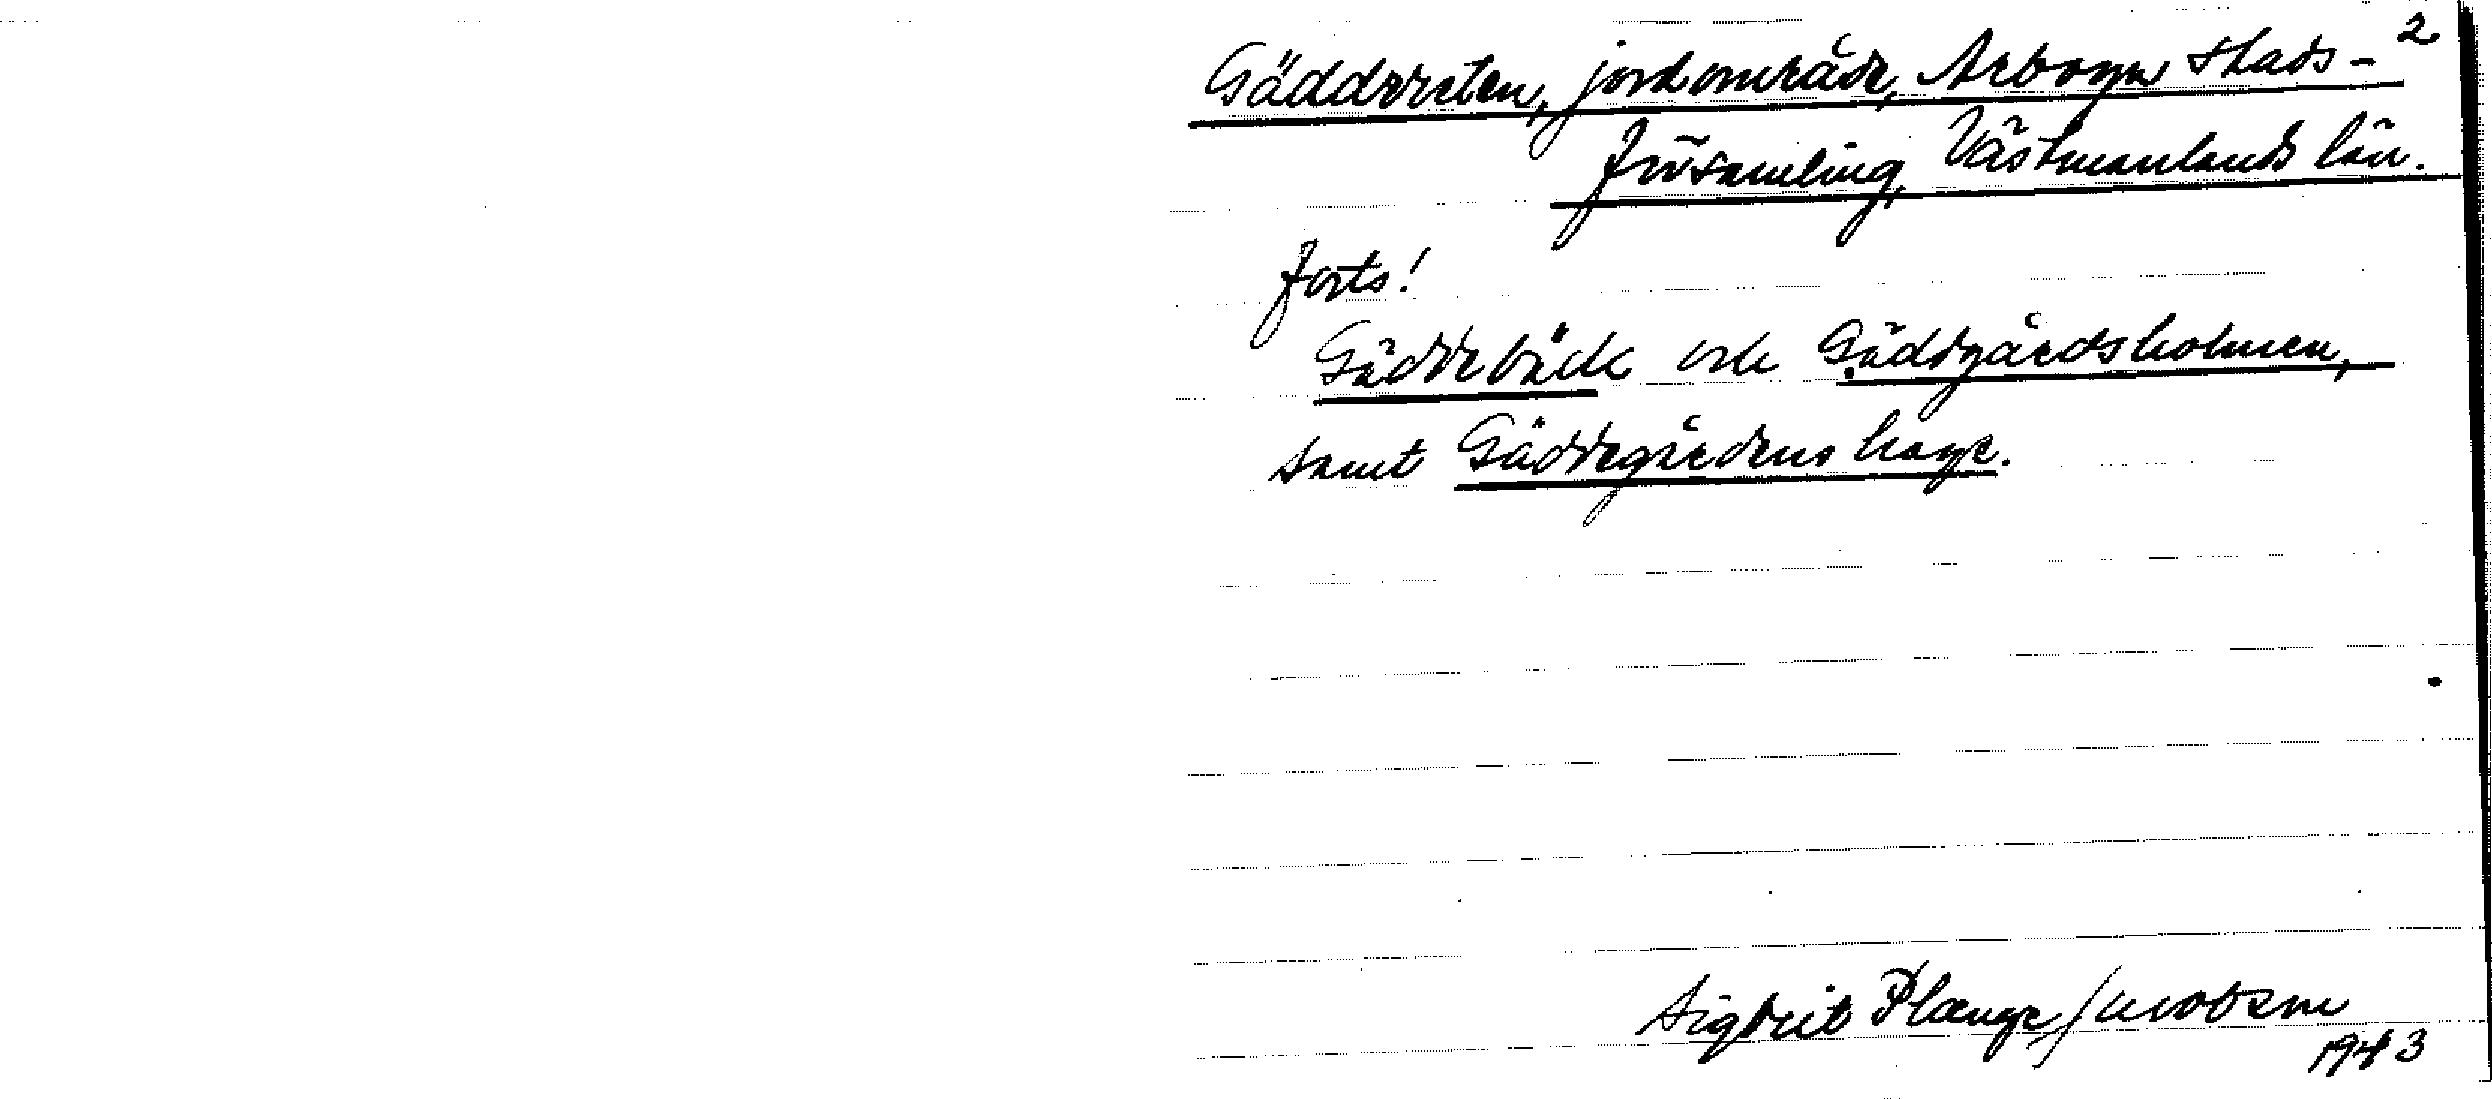 2
Gäddreten, jordområde, Arboga stads-
församling, Västmanlands län.
Forts!
Gäddebäck och Gäddgårdsholmen,
samt Gäddegårdens hage.
Sigbrit Plænge Jacobson
1943